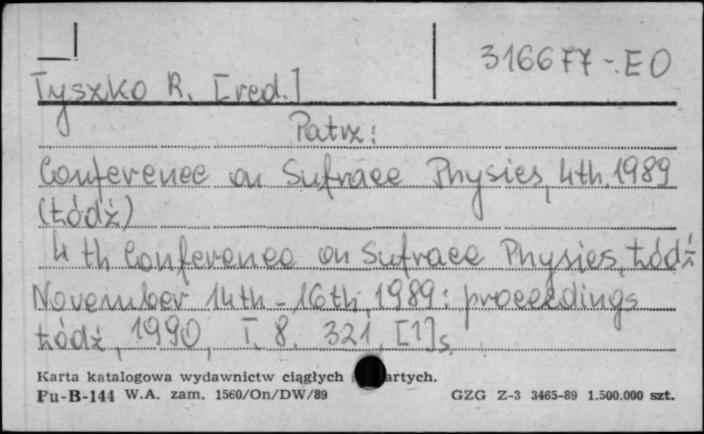 316677-.EO
Tyszko R. [red.]
Patrz:
Conference on Sufrace Physics, 4th. 1989
(Łódź)
4 th Conference on Sufrace Physics, Łódź
November 14th - 16th, 1989: proceedings
Łódź, 1990, I. 8. 321, [1] s.
Karta katalogowa wydawnictw ciągłych
Pu-B-144 W.A. zam. 1560/On/DW/89 GZG Z-3 3465-89 1.500.000 szt.